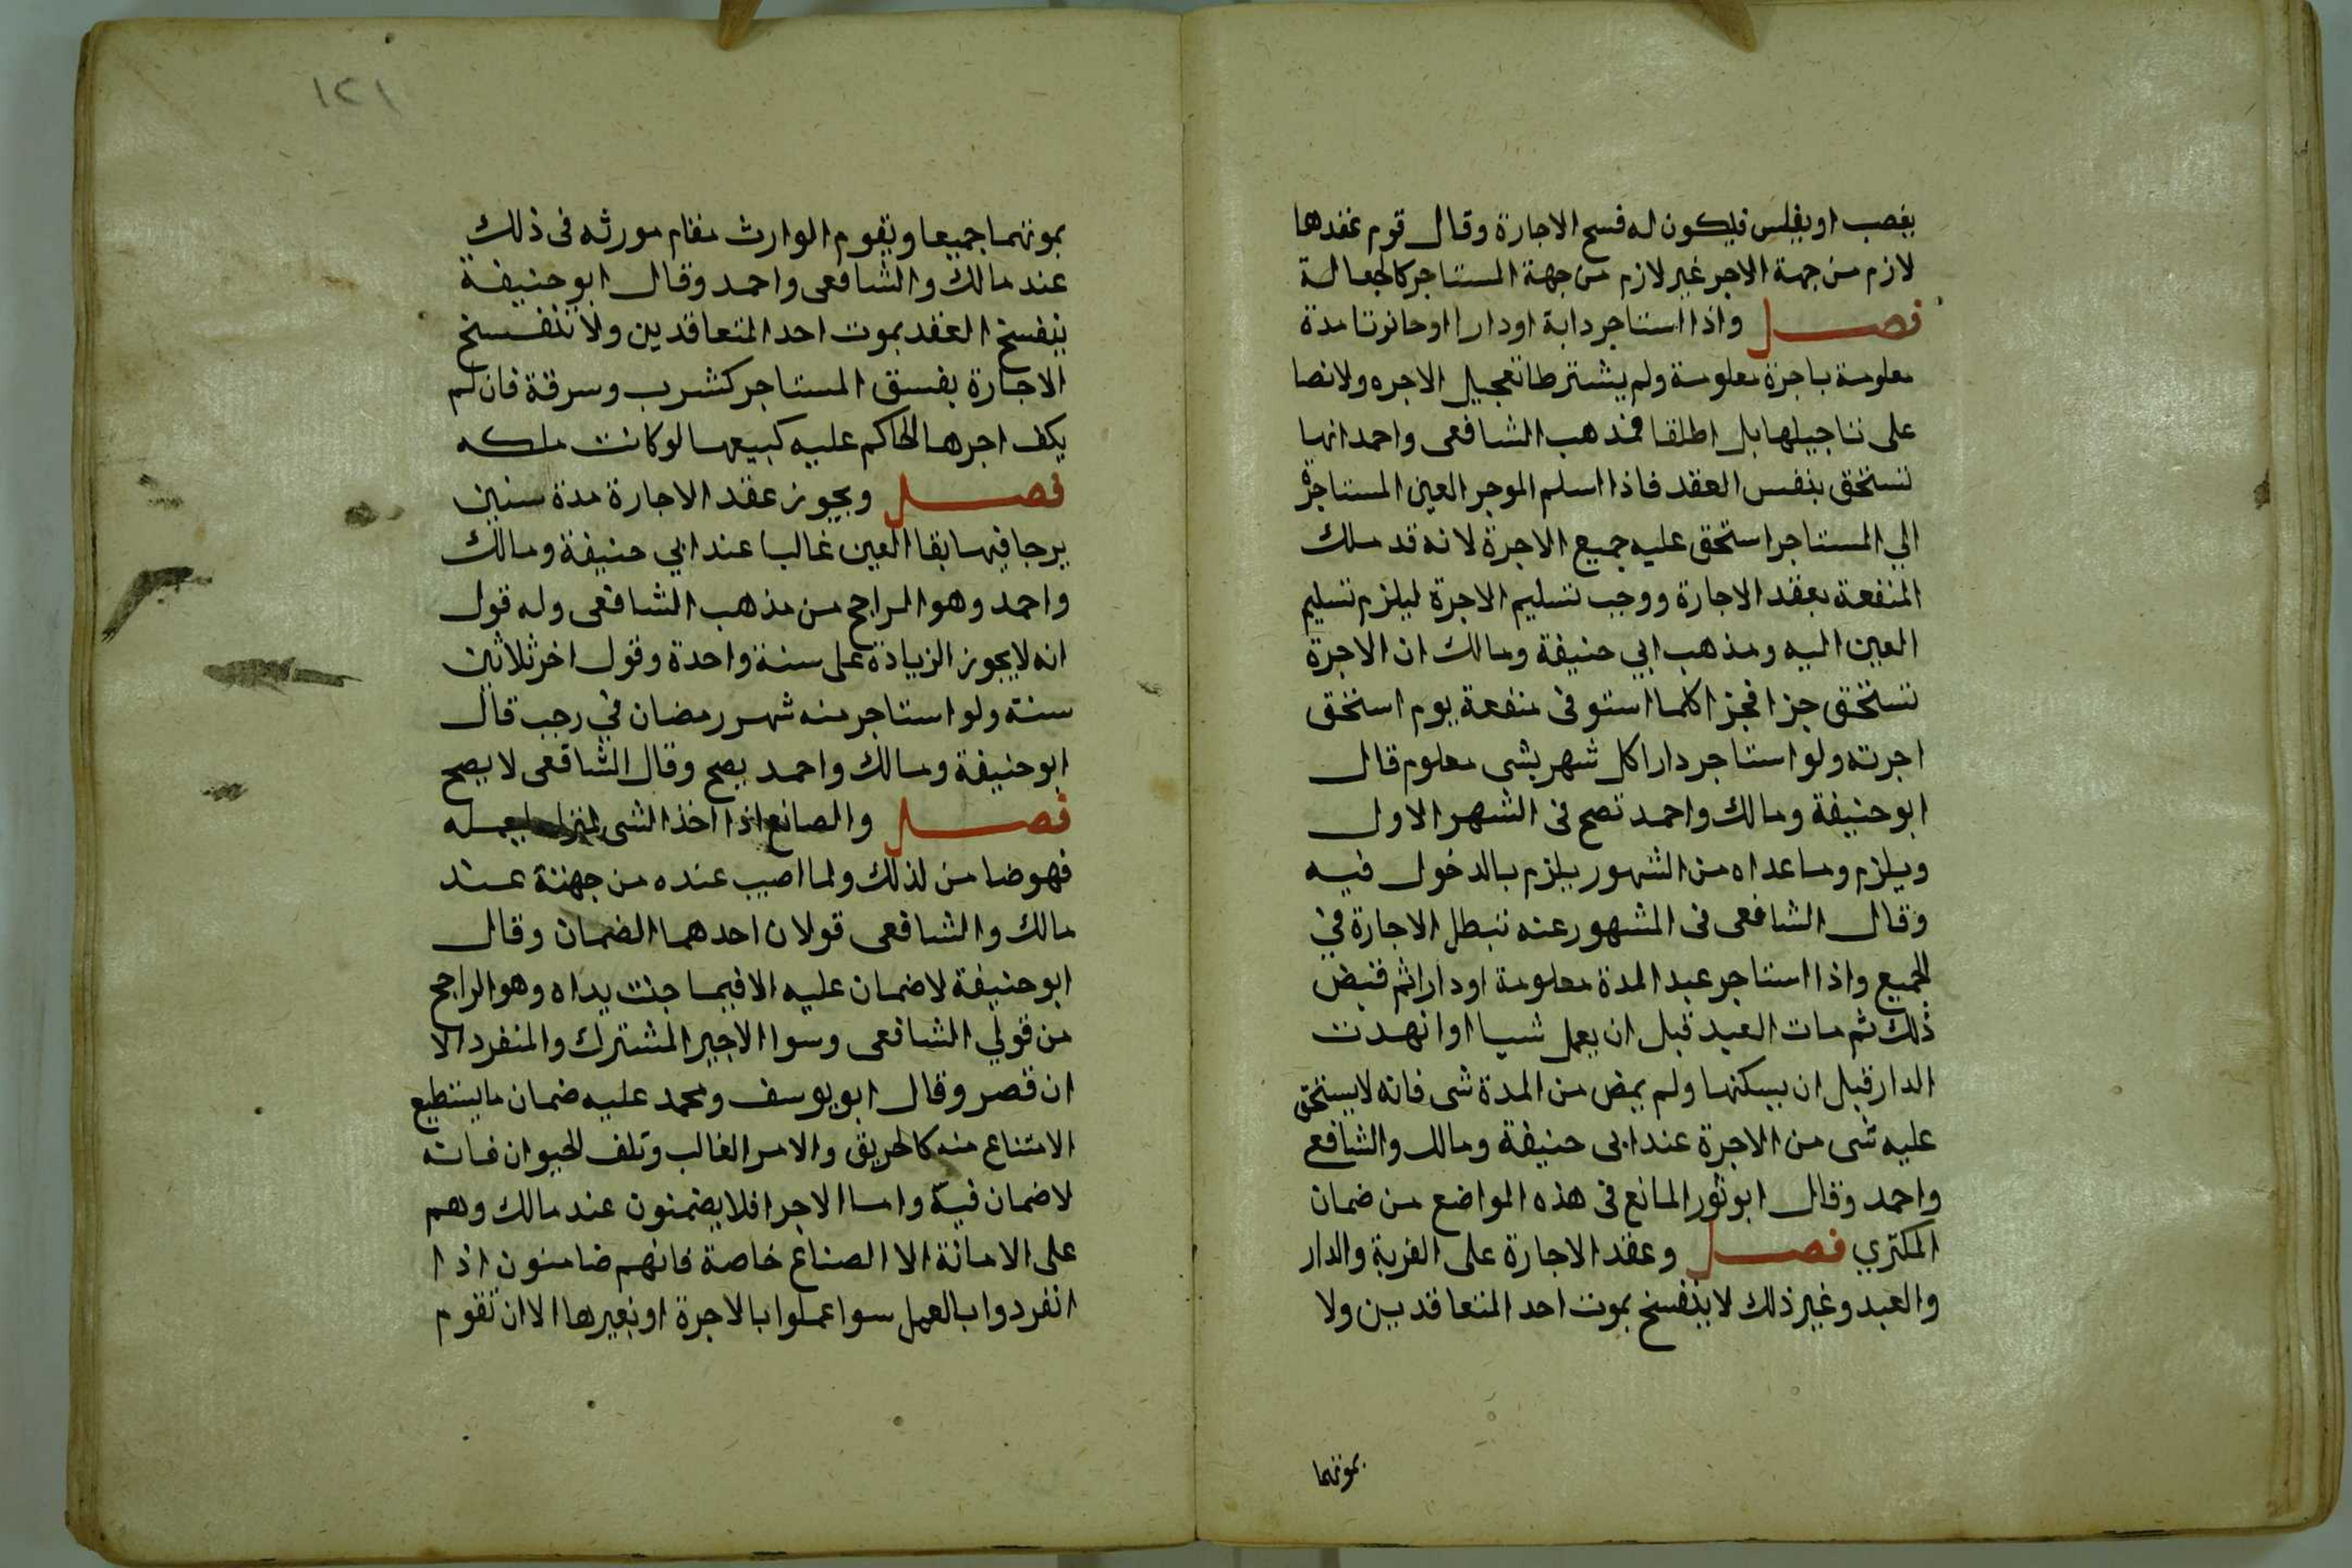 يغصب او يفلس فيكون له فسخ الاجارة وقال قوم عقدها
لازم من جهة الاجر غير لازم من جهة المستاجر كالجعالة
فصل واذا استاجر دابة او دارا او حانوتا مدة
معلومة باجرة معلومة ولم يشترطا تعجيل الاجره ولا نصا
على تاجيلها بل اطلقا فمذهب الشافعى واحمد انها
تستحق بنفس العقد فاذا اسلم الموجر العين المستاجرة
الي المستاجر استحق عليه جميع الاجرة لانه قد ملك
المنفعة بعقد الاجارة ووجب تسليم الاجرة ليلزم تسليم
العين اليه ومذهب ابي حنيفة ومالك ان الاجرة
تستحق جزا فجزا كلما استوفى منفعة يوم استحق
اجرته ولو استاجر دارا كل شهر بشى معلوم قال
ابو حنيفة ومالك واحمد تصح فى الشهر الاول
ويلزم وما عداه من الشهور يلزم بالدخول فيه
وقال الشافعى فى المشهور عنه تبطل الاجارة في
الجميع واذا استاجر عبد المدة معلومة او دارا ثم قبض
ذلك ثم مات العبد قبل ان يعمل شيا او انهدت
الدار قبل ان يسكنها ولم يمض من المدة شى فانه لا يستحق
عليه شى من الاجرة عند ابى حنيفة ومالك والشافع
واحمد وقال ابو ثور المانع فى هذه المواضع من ضمان
المكتري فصل وعقد الاجارة على القرية والدار
والعبد وغير ذلك لا ينفسخ بموت احد المتعاقدين ولا
بموتهما
١٢١
بموتهما جميعا ويقوم الوارث مقام مورثه فى ذلك
عند مالك والشافعى واحمد وقال ابو حنيفة
ينفسخ العقد بموت احد المتعاقدين ولا تنفسخ
الاجارة بفسق المستاجر كشرب وسرقة فان لم
يكف اجرها الحاكم عليه كبيعها لو كانت ملكه
فصل ويجوز عقد الاجارة مدة سنين
يرجا فيها بقا العين غالبا عند ابي حنيفة ومالك
واحمد وهو الراجح من مذهب الشافعى وله قول
انه لا يجوز الزيادة على سنة واحدة وقول اخر ثلاثين
سنة ولو استاجر منه شهر رمضان في رجب قال
ابو حنيفة ومالك واحمد يصح وقال الشافعى لا يصح
فصل والصانع اذا اخذ الشى لمنزله ليعمله
فهو ضامن لذلك ولما اصيب عنده من جهته عند
مالك والشافعى قولان احدهما الضمان وقال
ابو حنيفة لا ضمان عليه الا فيما جنت يداه وهو الراجح
من قولي الشافعى وسوا الاجير المشترك والمنفرد الا
ان قصر وقال ابو يوسف ومحمد عليه ضمان ما يستطيع
الامتناع منه كالحريق والامر الغالب وتلف الحيوان فانه
لا ضمان فيه واما الاجرا فلا يضمنون عند مالك وهم
على الامانة الا الصناع خاصة فانهم ضامنون اذا
انفردوا بالعمل سوا عملوا بالاجرة او بغيرها الا ان تقوم